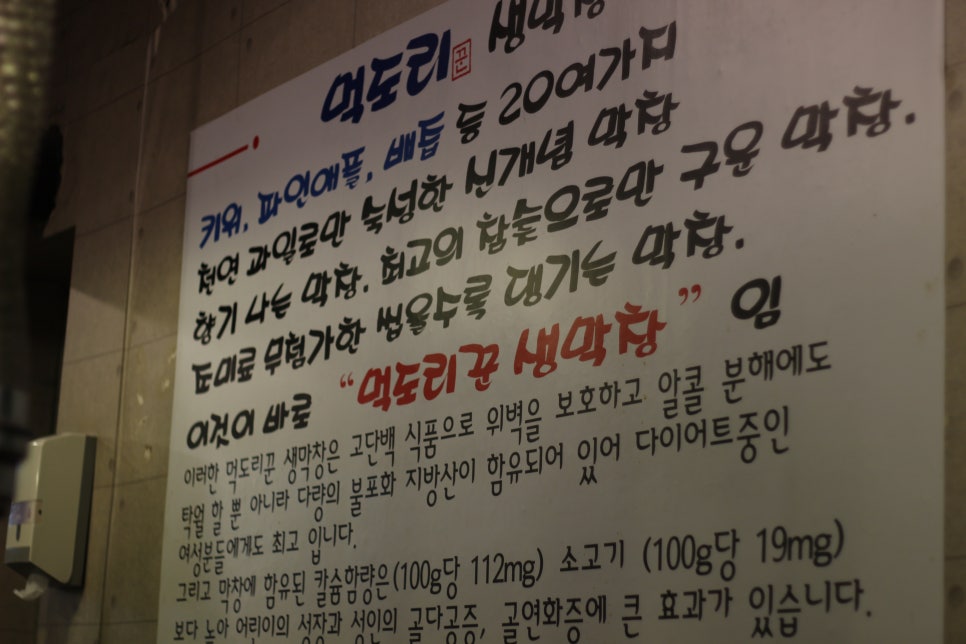 먹도리꾼 생막창
키위, 파인애플, 배톱 등 20여가지
천연 과일로만 숙성한 신개념 막창
향기 나는 막창. 최고의 참숯으로만 구운 막창.
조미료 무첨가한 씹을수록 댕기는 막창.
이것이 바로 “먹도리꾼 생막창” 임
이러한 먹도리꾼 생막창은 고단백 식품으로 위벽을 보호하고 알콜 분해에도
탁월 할 뿐 아니라 다량의 불포화 지방산이 함유되어 있어 다이어트중인
여성분들에게도 최고 입니다.
그리고 막창에 함유된 칼슘함량은(100g당 112mg) 소고기 (100g당 19mg)
보다 높아 어린이의 성장과 성인의 골다공증, 골연화증에 큰 효과가 있습니다.